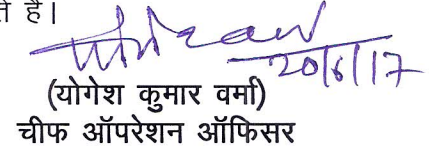 हैं।
20/6/17
(योगेश कुमार वर्मा)
चीफ ऑपरेशन ऑफिसर